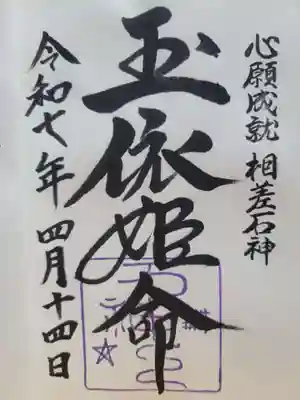 心願成就 相差石神
玉依姫命
令和七年 四月十四日